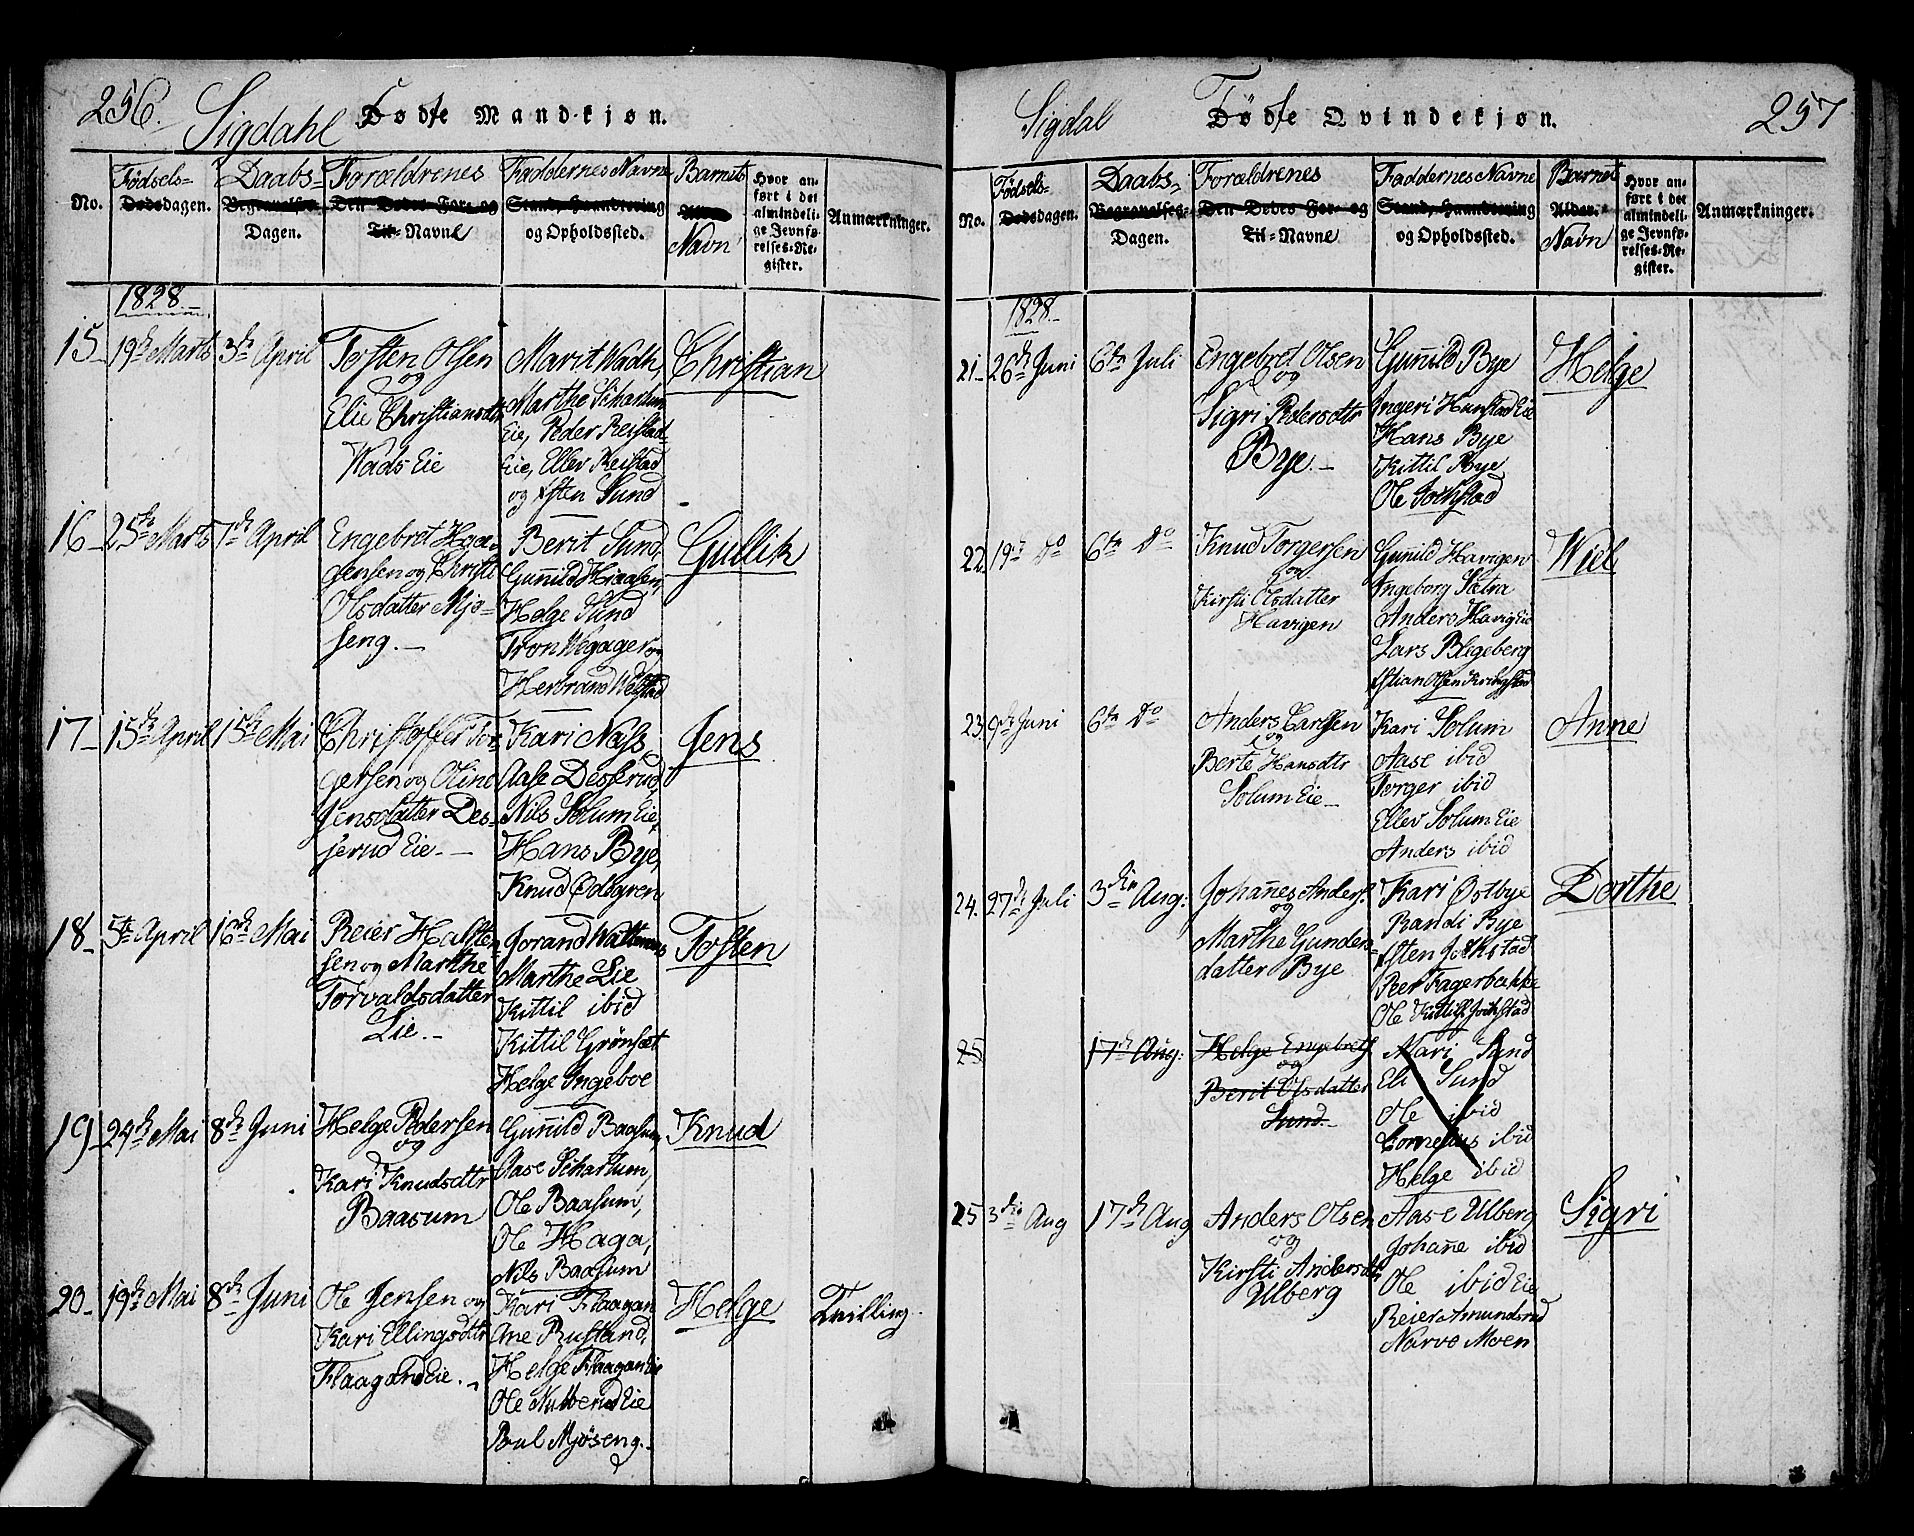 256. Sigdahl Fødte Mandkjøn.
No. Fødsels= Dødsdagen. Daabs= Begravelses= Dagen. Forældrenes Den Dødes For= og Til=Navne Faddernes Navne Stand, Haandtering og Opholdssted. Barnets Alder. Navn Hvor anført i det almindelige Jevnførelses=Register. Anmærkninger.
1828.
15 19de Marts 3de April Tosten Olsen Marit Wadh, Christian
og Marthe Skartum
Elie Christiansdtr Eie, Peder Reistad
Wads Eie Eie, Ellev Reistad
og Østen Sund
16 25de Marts 7de April Engebret Haa= Berit Sund, Gullik
gensen og Christi Gunild Hiaasen,
Olsdatter Mjø= Helge Sund
seng. Tron Wegager og
Herbrand Webstad
17 15de April 15de Mai Christoffer Tor= Kari Nass, Jens
gersen og Oline Aase Desserud,
Jensdatter Des= Nils Solum Eie,
serud Eie. Hans Bye,
Knud Odegren
18 5te April 16de Mai Reier Halsten= Jorand Wattennes Tosten
sen og Marthe Marthe Lie
Torvaldsdatter Kittil ibid
Lie. Kittil Grønsæt
Helge Ingeboe
19 24de Mai 8de Juni Helge Pedersen Gunild Baasum, Knud
og Aase Skartum,
Kari Knudsdtr Ole Baasum,
Baasum Ole Haga,
Nils Baasum
20 19de Mai 8de Juni Ole Jensen og Kari Flaagan Helge Tvilling.
Kari Ellingsdtr Ane Rustand,
Flaagan Eie. Helge Flaagan Eie
Ole Nubberud Eie
Poul Mjøseng.
Sigdal Fødte Qvindekjøn. 257
No. Fødsels= Dødsdagen. Daabs= Begravelses= Dagen. Forældrenes Den Dødes For= og Til=Navne Faddernes Navne Stand, Haandtering og Opholdssted. Barnets Alder. Navn Hvor anført i det almindelige Jevnførelses=Register. Anmærkninger.
1828
21 26de Juni 6te Juli Engebret Olsen Gunild Bye Helge
og Ingeri Hunstad Eie
Sigri Pedersdtr Hans Bye
Bye. Kittil Bye
Ole Jokstad
22 19de Do 6te Do Knud Torgersen Gunild Havigen Wiel
og Ingeborg Sætra
Kirsti Olsdatter Anders Havig Eie
Havigen Lars Blegeberg
Østian Olsen Kringstad
23 9de Juni 6te Do Anders Carlsen Kari Solum Anne
og Aase ibid
Berte Hansdtr Torger ibid
Solum Eie Ellev Solum Eie
Anders ibid
24. 27de Juli 3die Aug: Johañes Anders. Kari Østbye Dorthe
og Randi Bye
Marthe Gunders= Østen Jokstad
datter Bye Peer Fagerbakke
Ole Kittils Jokstad
25 17de Aug: Helge Engebrets Mari Sund
og Eli Sund
Berit Olsdatter Ole ibid
Sund Cornelius ibid
Helge ibid
25 3die Aug 17de Aug Anders Olsen Aase Ulberg Sigri
og Johañe ibid
Kirsti Andersdtr Ole ibid Eie
Ulberg Reier Amundsrud
Narvo Moen